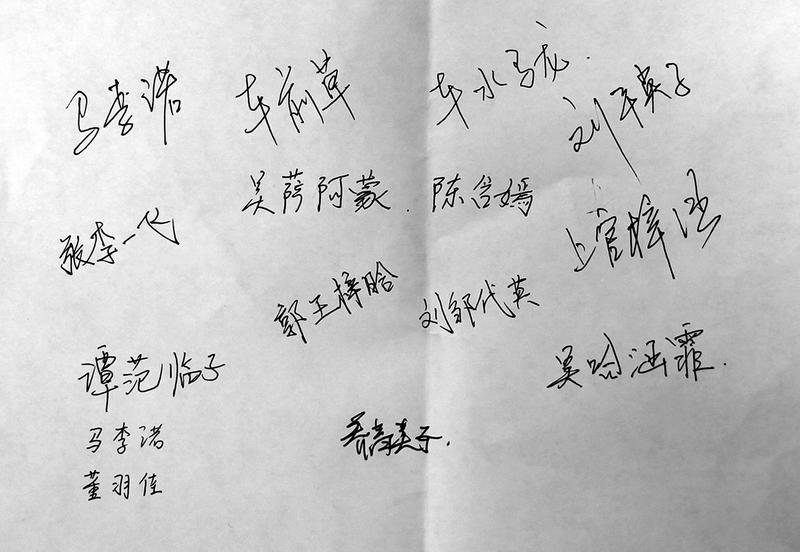 马李渚 车前草 车水马龙.
刘平英子
吴萨阿蒙. 陈含嫣
张李一飞
上官梓涵
郭王梓晗 刘邹代英
谭范临子
吴哈涵霏.
马李渚
董羽佳